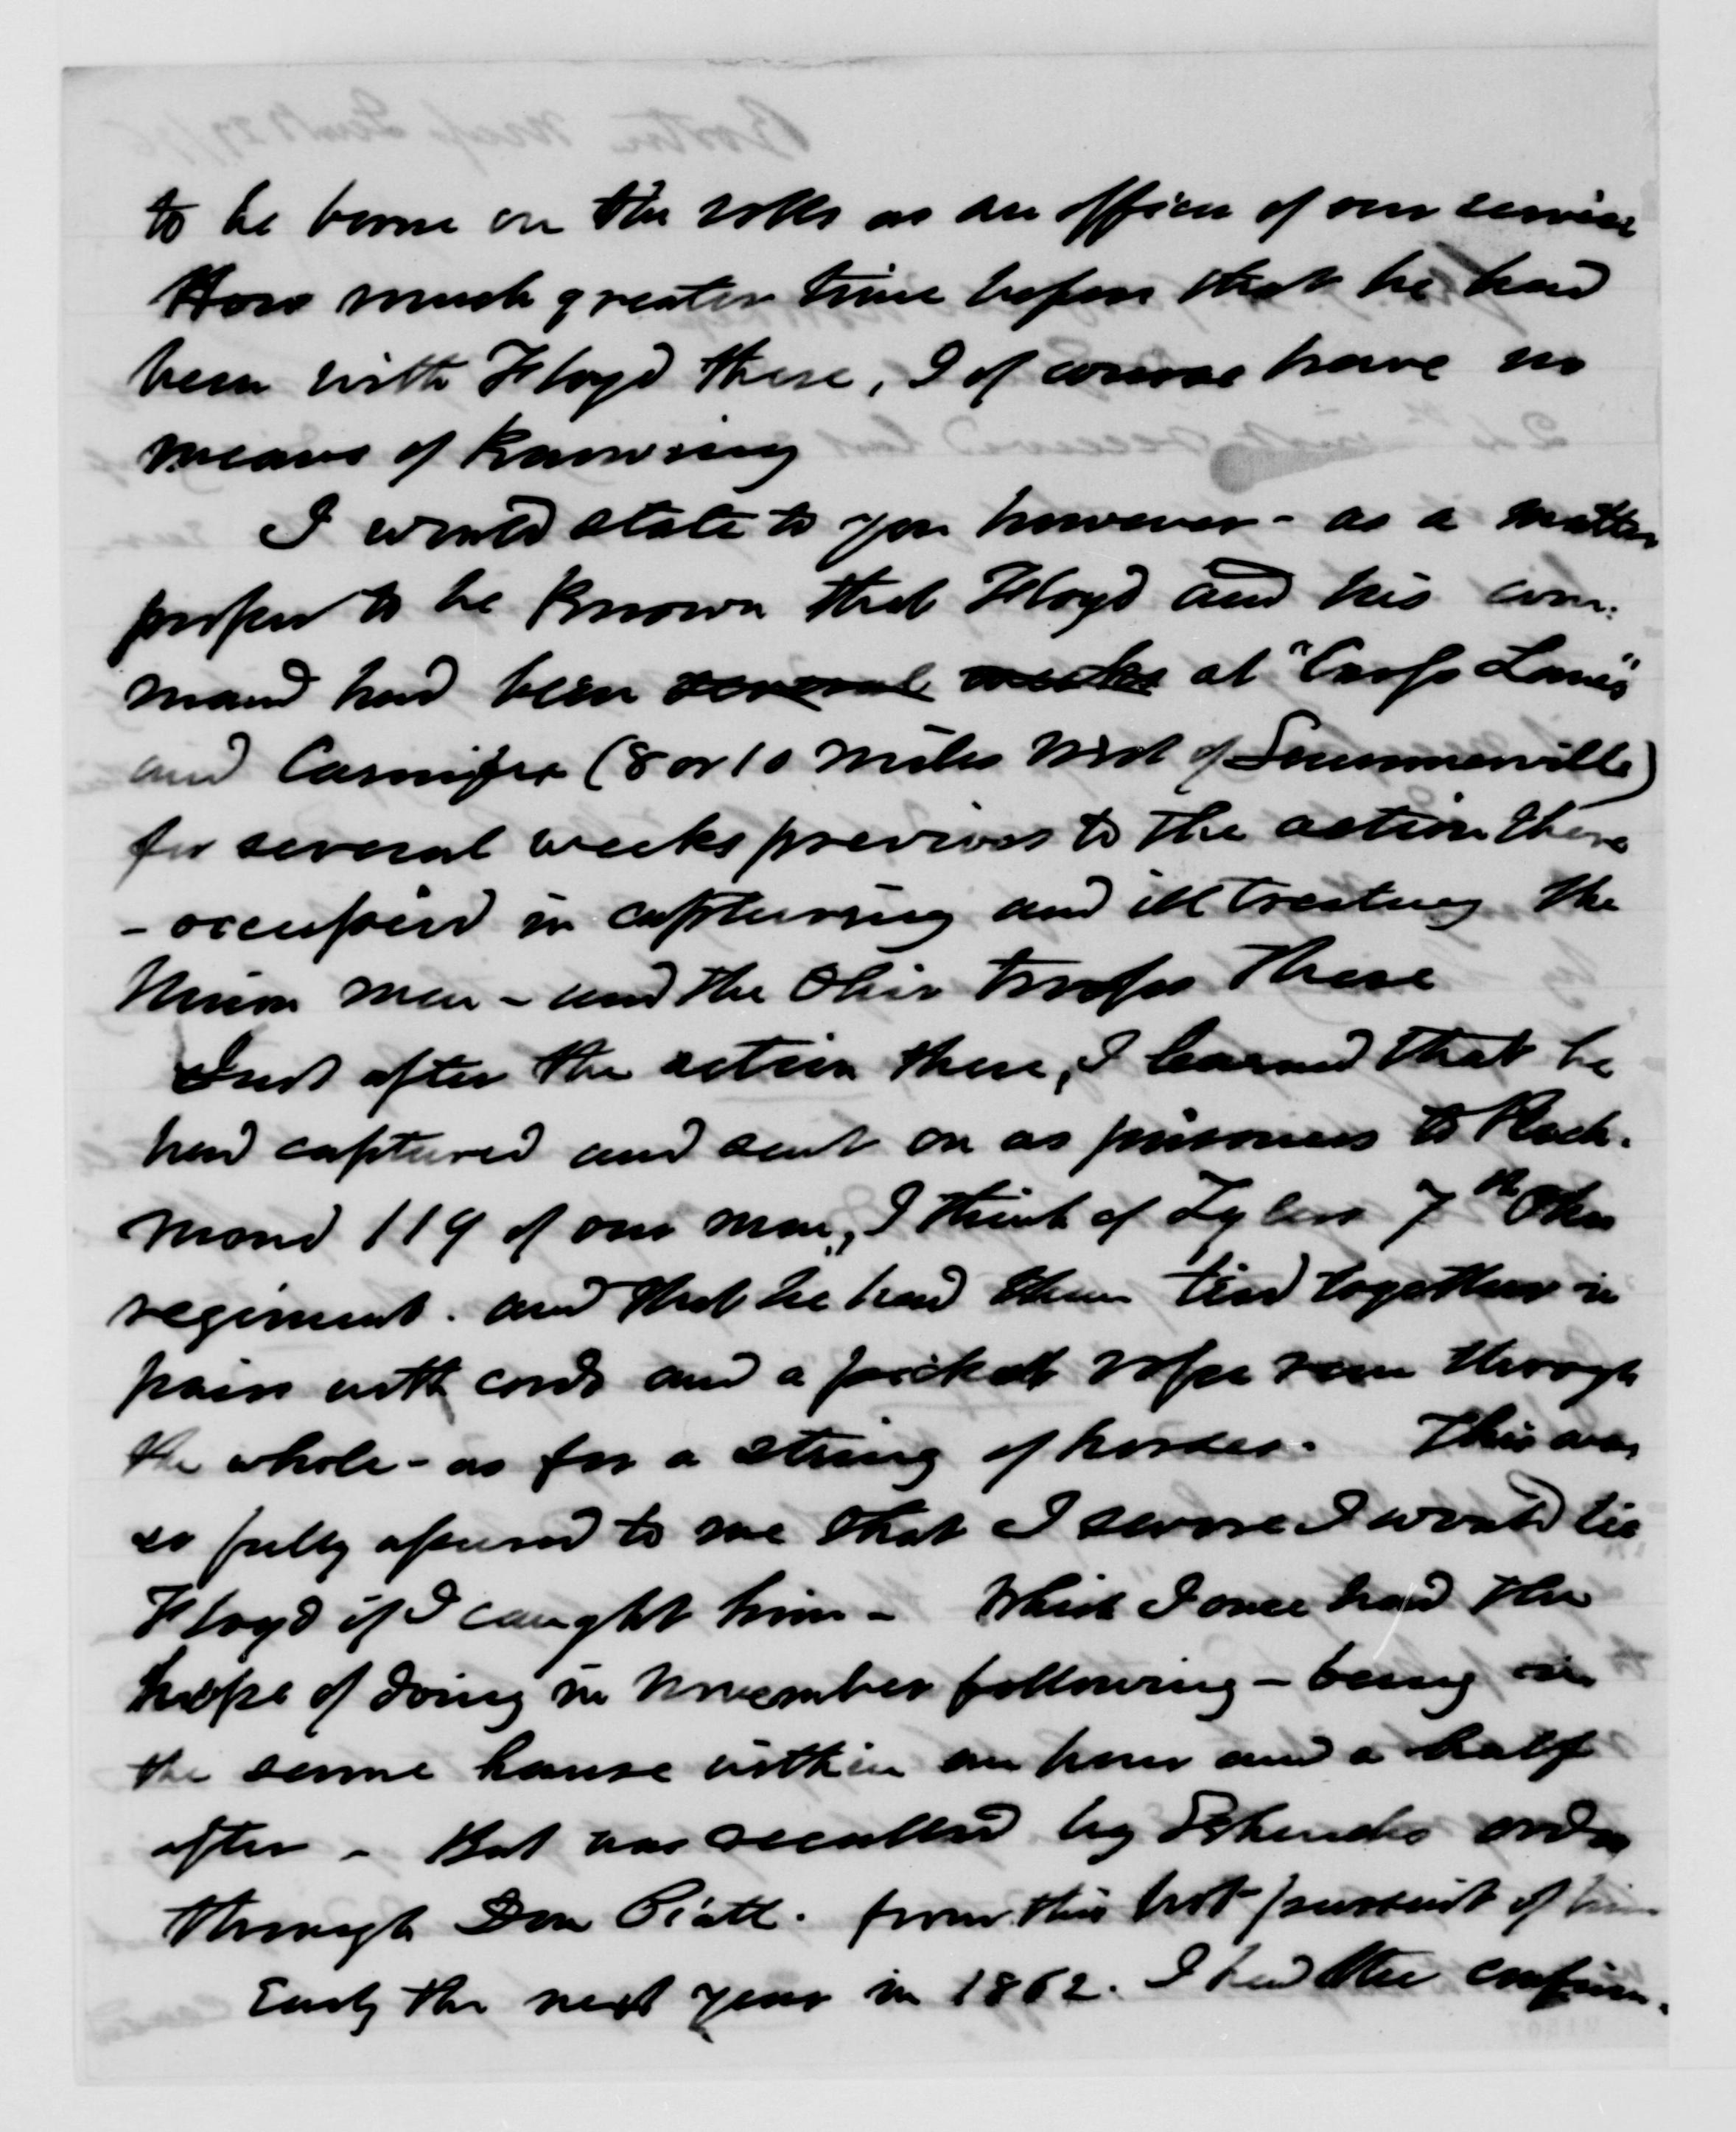 to be borne on the rolls as an officer of our service
How much greater time before that he had
been with Floyd there, I of course have no
means of knowing
I would state to you however - as a matter
proper to be known that Floyd and his com-
mand had been several weeks at "Cross Lanes"
and Carnifex (8 or 10 miles West of Summerville)
for several weeks previous to the action there
- occupied in capturing and ill treating the
Union men - and the Ohio troops there
Just after the action there, I learned that he
had captured and sent on as prisoners to Rich-
mond 119 of our men, I think of Tylers 7th Ohio
regiment. and that he had them tied together in
pairs with cords and a picket rope run through
the whole - as for a string of horses. This was
so fully assured to me that I swore I would tie
Floyd if I caught him - Which I once had the
hope of doing in November following - being in
the same house within an hour and a half
after - But was recalled by Schencks order
through Don Piatt. from this hot pursuit of him
Early the next year in 1862. I had the confirm-